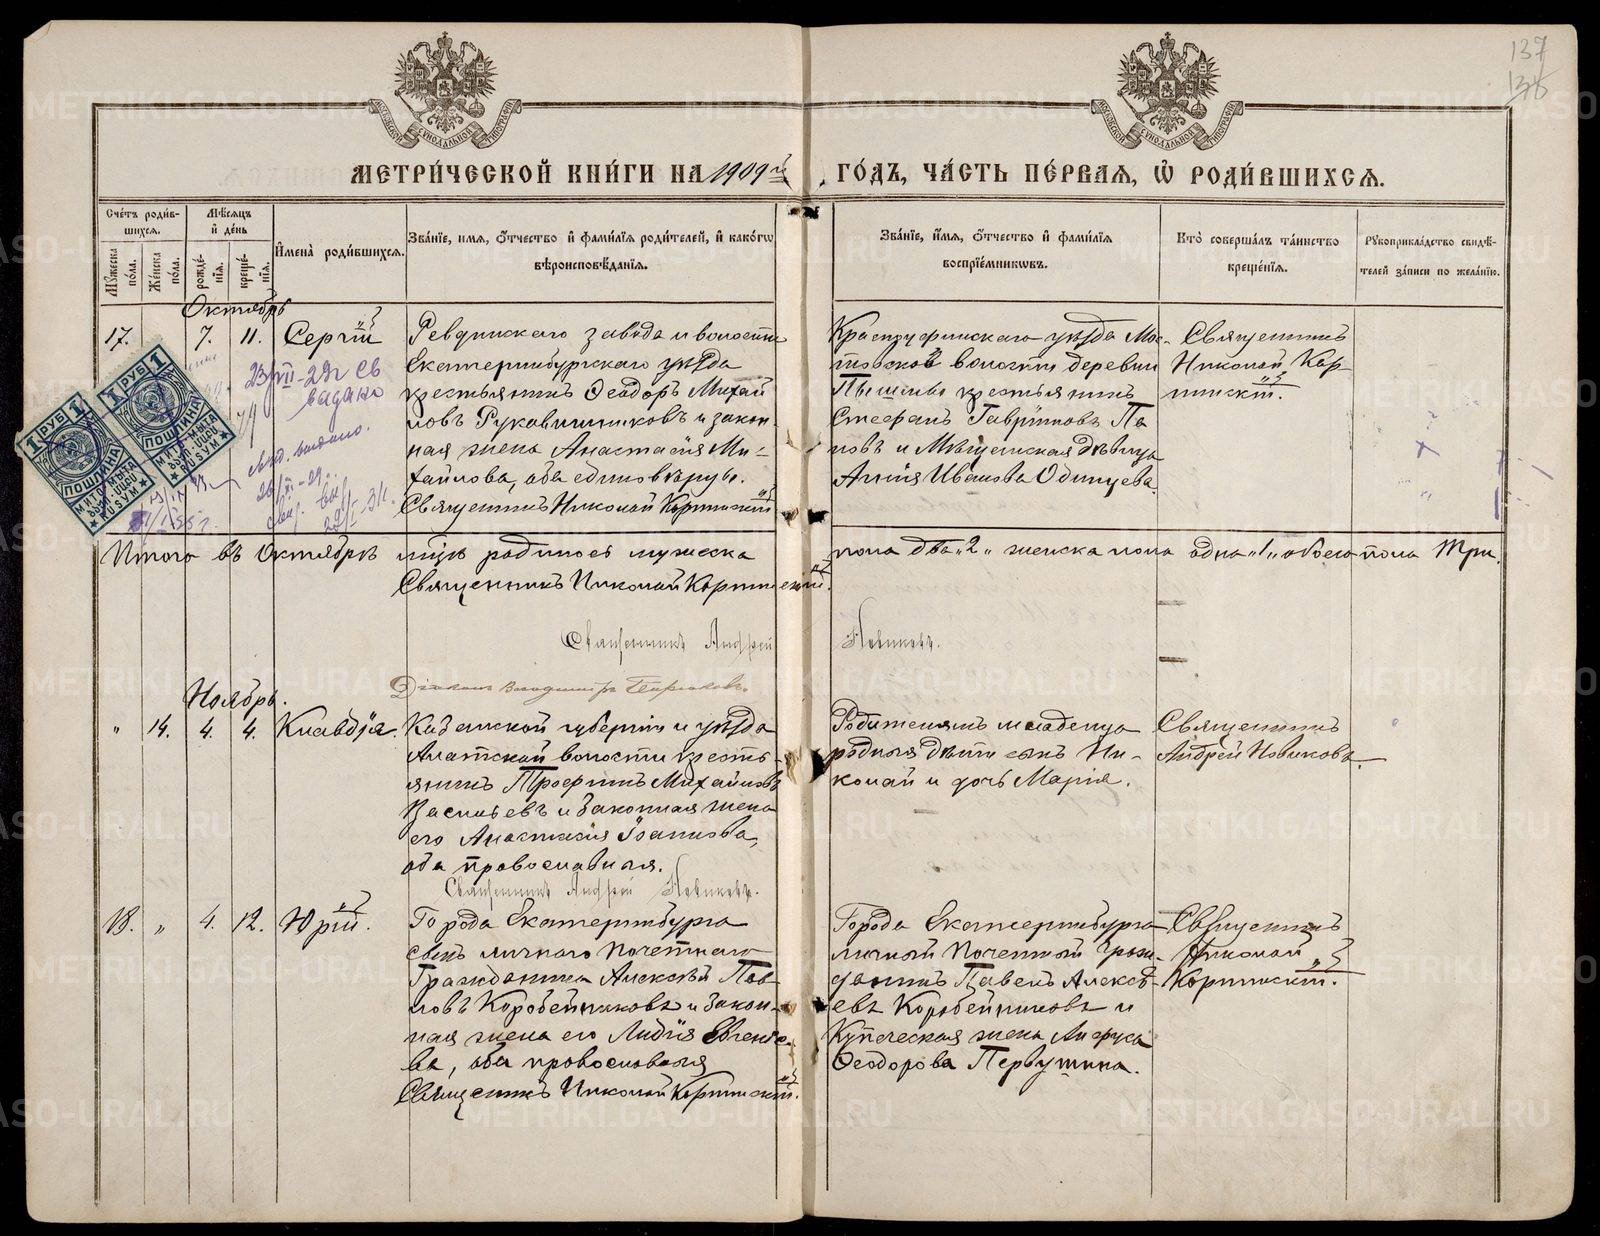 137
МЕТРИЧЕСКОЙ КНИГИ НА 1909й
ГОДЪ, ЧАСТЬ ПЕРВАЯ, Ѡ РОДИВШИХСЯ.
Счетъ родив-
шихся.
Мужеска пола.
Женска пола.
Мѣсяцъ и день
рожде-
нія.
креще-
нія.
Имена родившихся.
Званіе, имя, ѻтчество и фамилія родителей, и какогѡ
вѣроисповѣданія.
Званіе, имя, ѻтчество и фамилія
воспріемникѡвъ.
Кто совершалъ таинство
крещенія.
Рукоприкладство свидѣ-
телей записи по желанію.
Октябрь
17.
7.
11.
Сергій
Ревдинскаго завода и волости
Екатеринбургскаго уѣзда
крестьянинъ Ѳеодоръ Михай
ловъ Рукавишниковъ и закон-
ная жена Анастасія Ми-
хайлова, оба единовѣрцы.
Священникъ Николай Корнинскій
Красноуфимскаго уѣзда
волости деревни
крестьянинъ
Стефанъ Гавріиловъ Па
новъ и Мѣщанская дѣвица
Анна Иванова Одинцева.
Священникъ
Николай Кор-
нинскій.
1 РУБ 1
ПОШЛИНА
1 РУБ 1
ПОШЛИНА
23/VII-29г Св
выдано
выдано.
Итого въ Октябрѣ мцѣ родилось мужеска
пола два "2" женска пола одна "1" обоего пола три.
Священникъ Николай Корнинскій.
Священникъ Андрей
Новиковъ.
Діаконъ Владиміръ
Ноябрь.
"
14.
4.
4.
Клавдія.
Казанской губерніи и уѣзда
Алатской волости кресть-
янинъ Трофимъ Михайловъ
Васильевъ и законная жена
его Анастасія Іоаннова,
оба православныя.
Священникъ Андрей Новиковъ.
Родителямъ младенца
родныя дѣти сынъ Ни-
колай и дочь Марія.
Священникъ
Андрей Новиковъ.
18.
"
4.
12.
Юрій.
Города Екатеринбурга
сынъ личнаго почетнаго
Гражданина Алексѣй Пав-
ловъ Коробейниковъ и закон-
ная жена его Лидія Евгеніе-
ва, оба православныя
Священникъ Николай Корнинскій.
Города Екатеринбурга
личный Почетный граж-
данинъ Павелъ Алексѣ-
евъ Коробейниковъ и
Купеческая жена Анфуса
Ѳеодорова Первушина.
Священникъ
Николай
Корнинскій.
METRIKI.GASO-URAL.RU